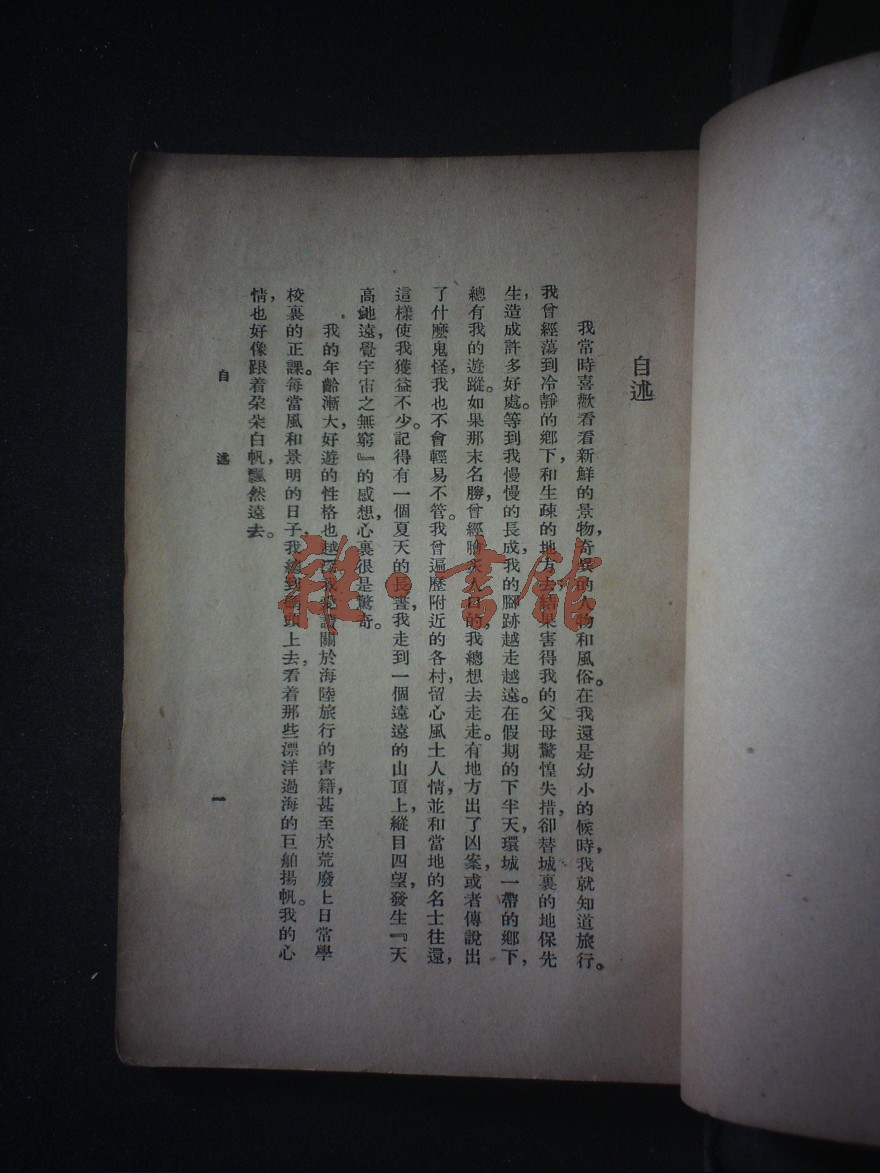 自述
我常時喜歡看看新鮮的景物，奇異的人物和風俗。在我還是幼小的候時，我就知道旅行。
我曾經蕩到冷靜的鄉下，和生疎的地方去結果害得我的父母驚惶失措，卻替城裏的地保先
生，造成許多好處。等到我慢慢的長成，我的腳跡越走越遠。在假期的下半天，環城一帶的鄉下，
總有我的遊蹤。如果那末名勝，曾經膾炙人口的，我總想去走走。有地方出了凶案，或者傳說出
了什麼鬼怪，我也不會輕易不管。我曾遍歷附近的各村，留心風土人情，並和當地的名士往還，
這樣使我獲益不少。記得有一個夏天的長晝，我走到一個遠遠的山頂上，縱目四望，發生『天
高地遠，覺宇宙之無窮』的感想，心裏很是驚奇。
我的年齡漸大，好遊的性格也越我愛讀關於海陸旅行的書籍，甚至於荒廢上日常學
校裏的正課。每當風和景明的日子，我總到碼頭上去，看着那些漂洋過海的巨舶揚帆。我的心
情，也好像跟着朶朶白帆，飄然遠去。
自述
一
雜·書館